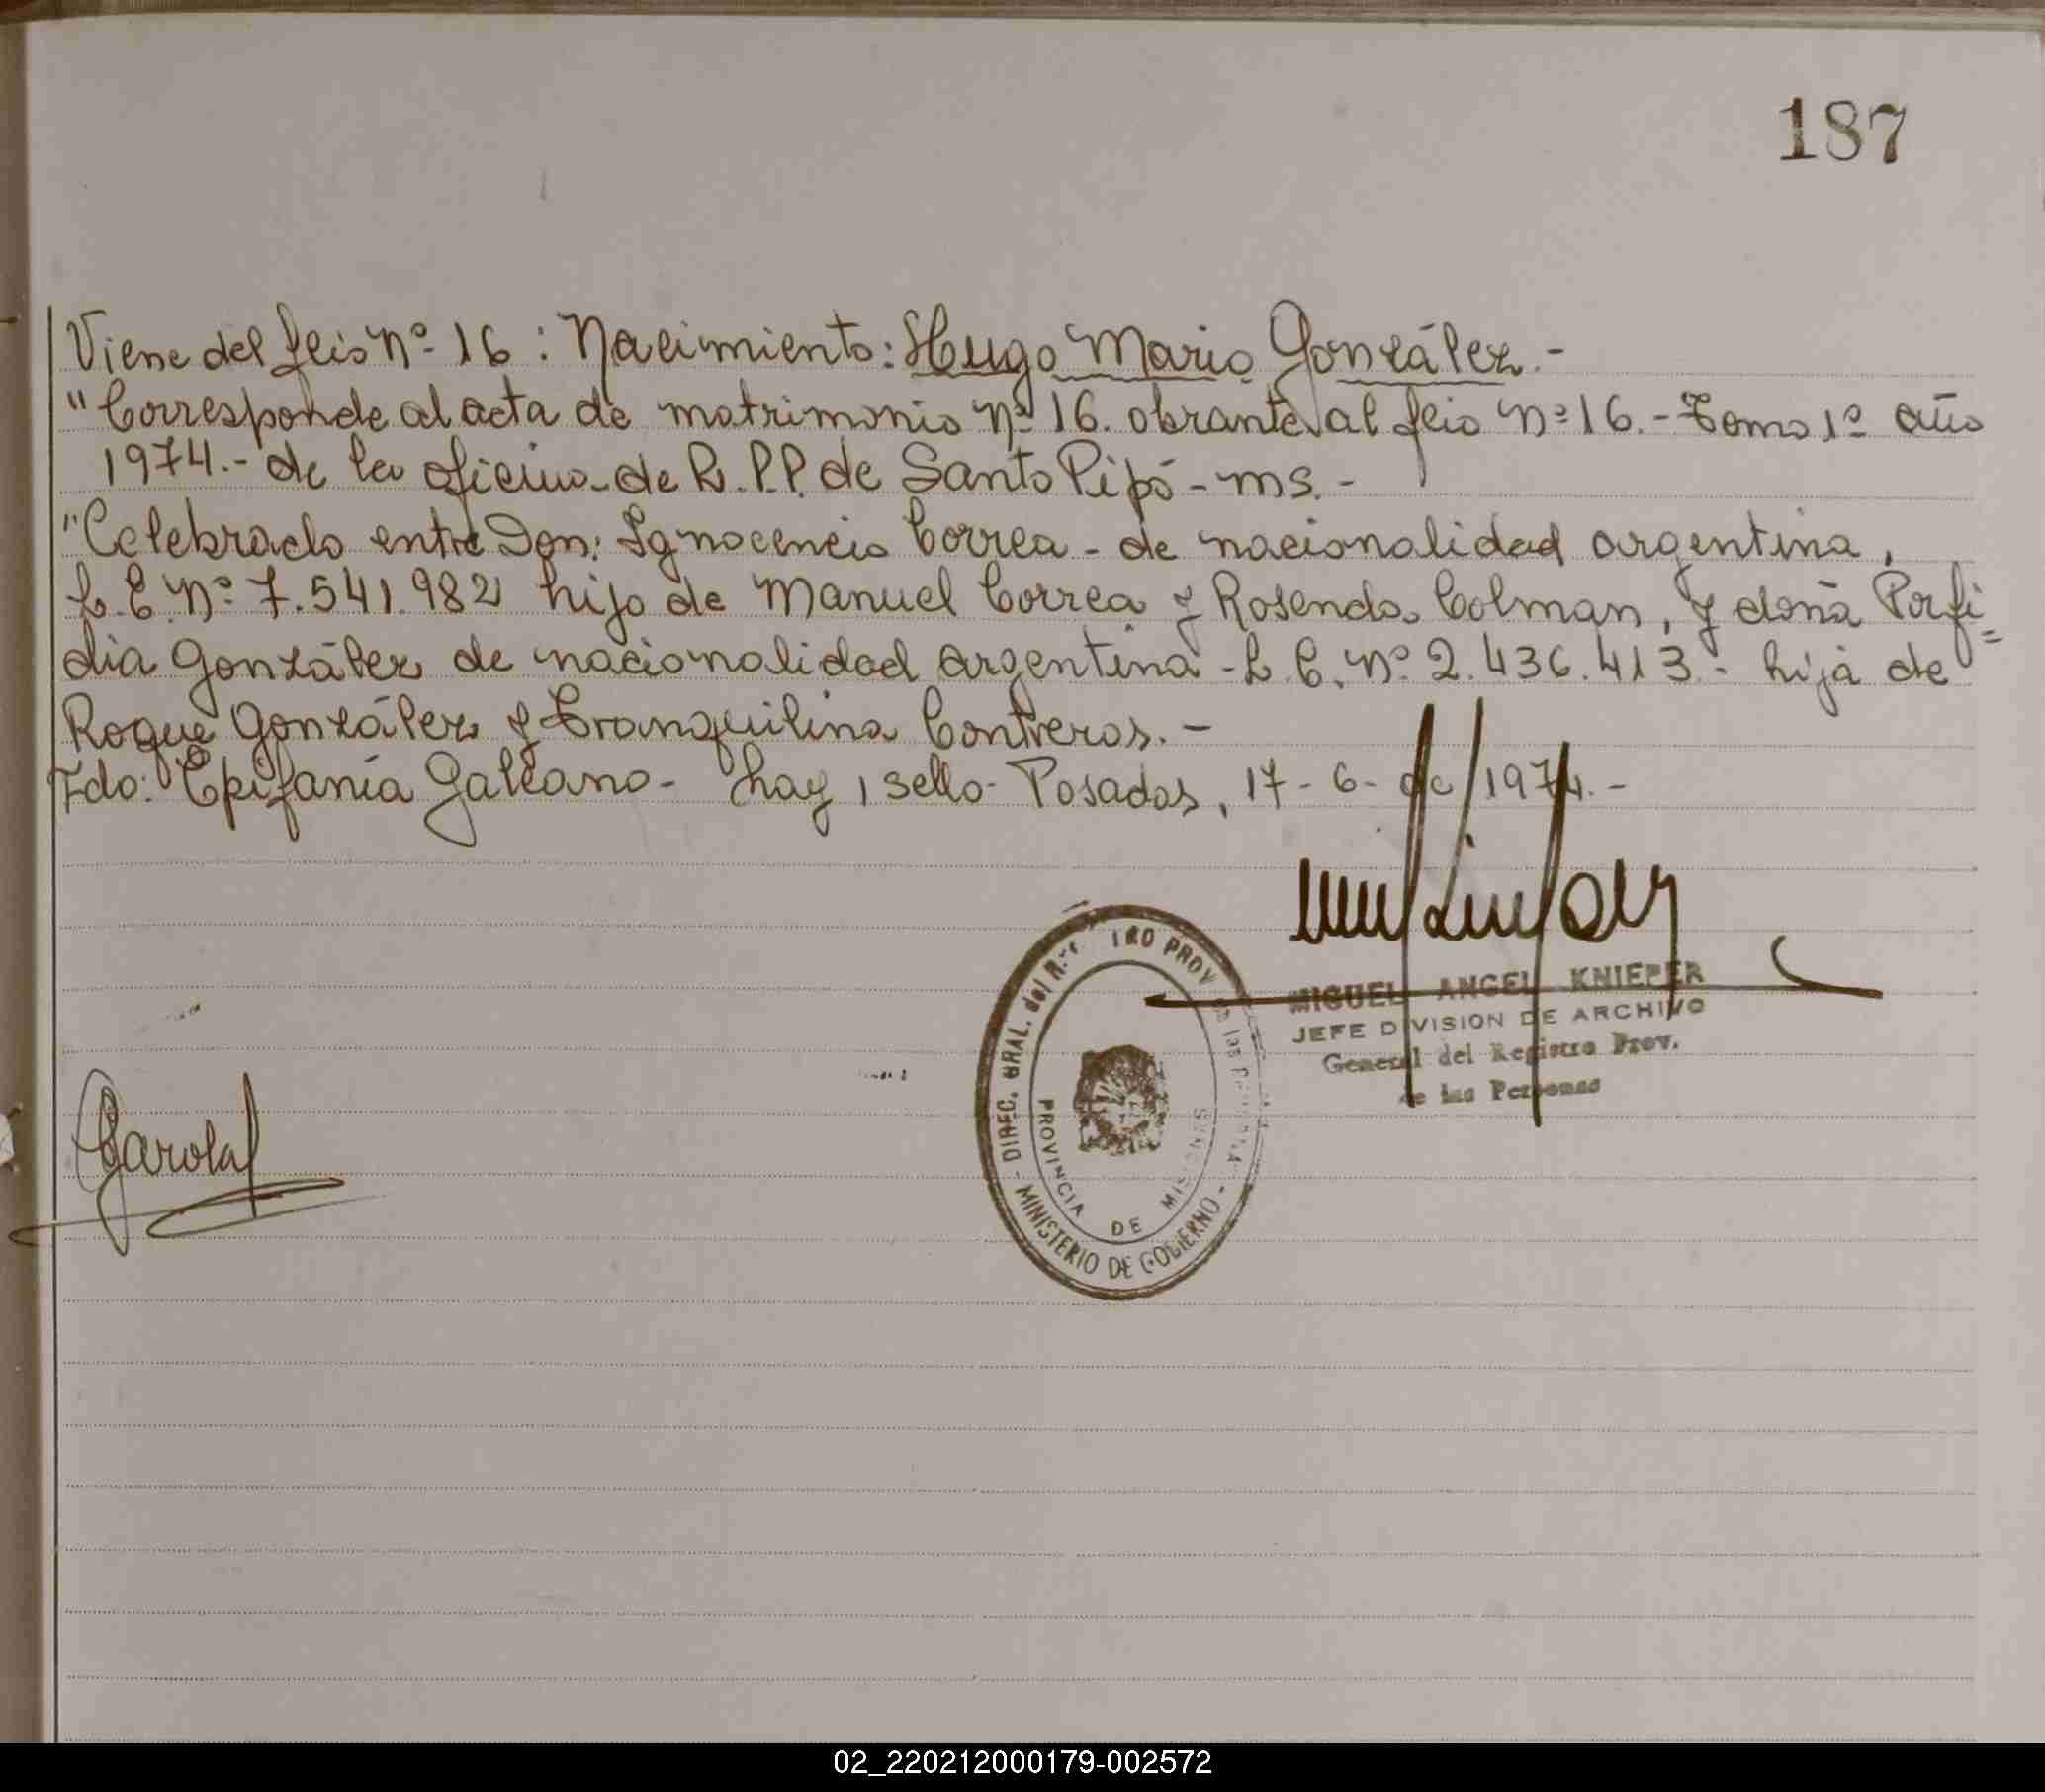 187
Viene del flio nº 16 : Nacimiento: Hugo Mario González.-
"Corresponde al acta de matrimonio nº 16. obrante al flio nº 16.- Tomo 1º año
1974.- de la oficina de R.P.P. de Santo Pipó - ms. -
"Celebrado entre Don: Ignocencio Correa - de nacionalidad argentina,
L.E. nº 7.541.982 hijo de Manuel Correa y Rosenda Colman, y doña Porfi=
dia González de nacionalidad argentina - L.C. nº 2.436.413.- hija de
Roque González y Tranquilina Contreras. -
Fdo: Epifanía Galeano - hay 1 sello - Posadas, 17 - 6 - de 1974. -
MIGUEL ANGEL KNIEPER
JEFE DIVISION DE ARCHIVO
General del Registro Prov.
de las Personas
DIREC. GRAL. del PROV de las
MINISTERIO DE GOBIERNO
PROVINCIA DE MISIONES
02_220212000179-002572